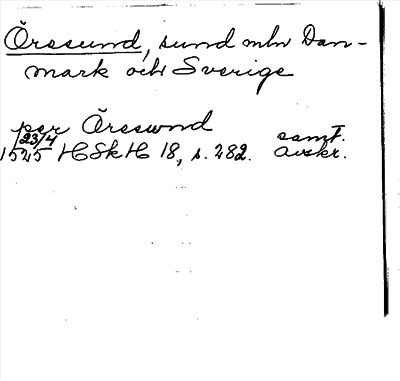 Öresund, sund mln Dan-
mark och Sverige
per Öreswnd
1525 23/4 HSkH 18, s. 282. samt. avskr.